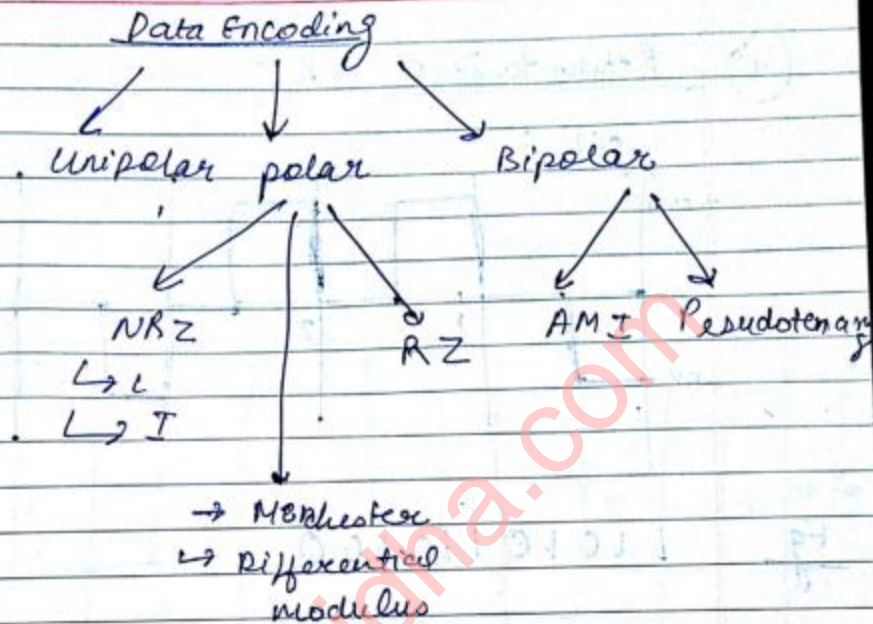 Data Encoding
Unipolar polar Bipolar
NRZ RZ AMI Pesudotenary
↳ L
↳ I
→ Manchester
↳ Differential
modulus
Eg
idha.com